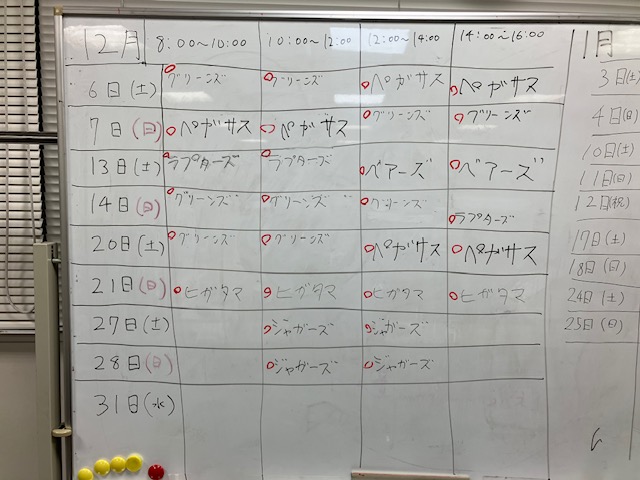 12月 8:00〜10:00 10:00〜12:00 12:00〜14:00 14:00〜16:00
6日(土) グリーンズ グリーンズ ペガサス ペガサス
7日(日) ペガサス ペガサス グリーンズ グリーンズ
13日(土) ラプターズ ラプターズ ベアーズ ベアーズ
14日(日) グリーンズ グリーンズ グリーンズ ラプターズ
20日(土) グリーンズ グリーンズ ペガサス ペガサス
21日(日) ヒガタマ ヒガタマ ヒガタマ ヒガタマ
27日(土) ジャガーズ ジャガーズ
28日(日) ジャガーズ ジャガーズ
31日(水)
11月
3日(土)
4日(日)
10日(土)
11日(日)
12日(祝)
17日(土)
18日(日)
24日(土)
25日(日)